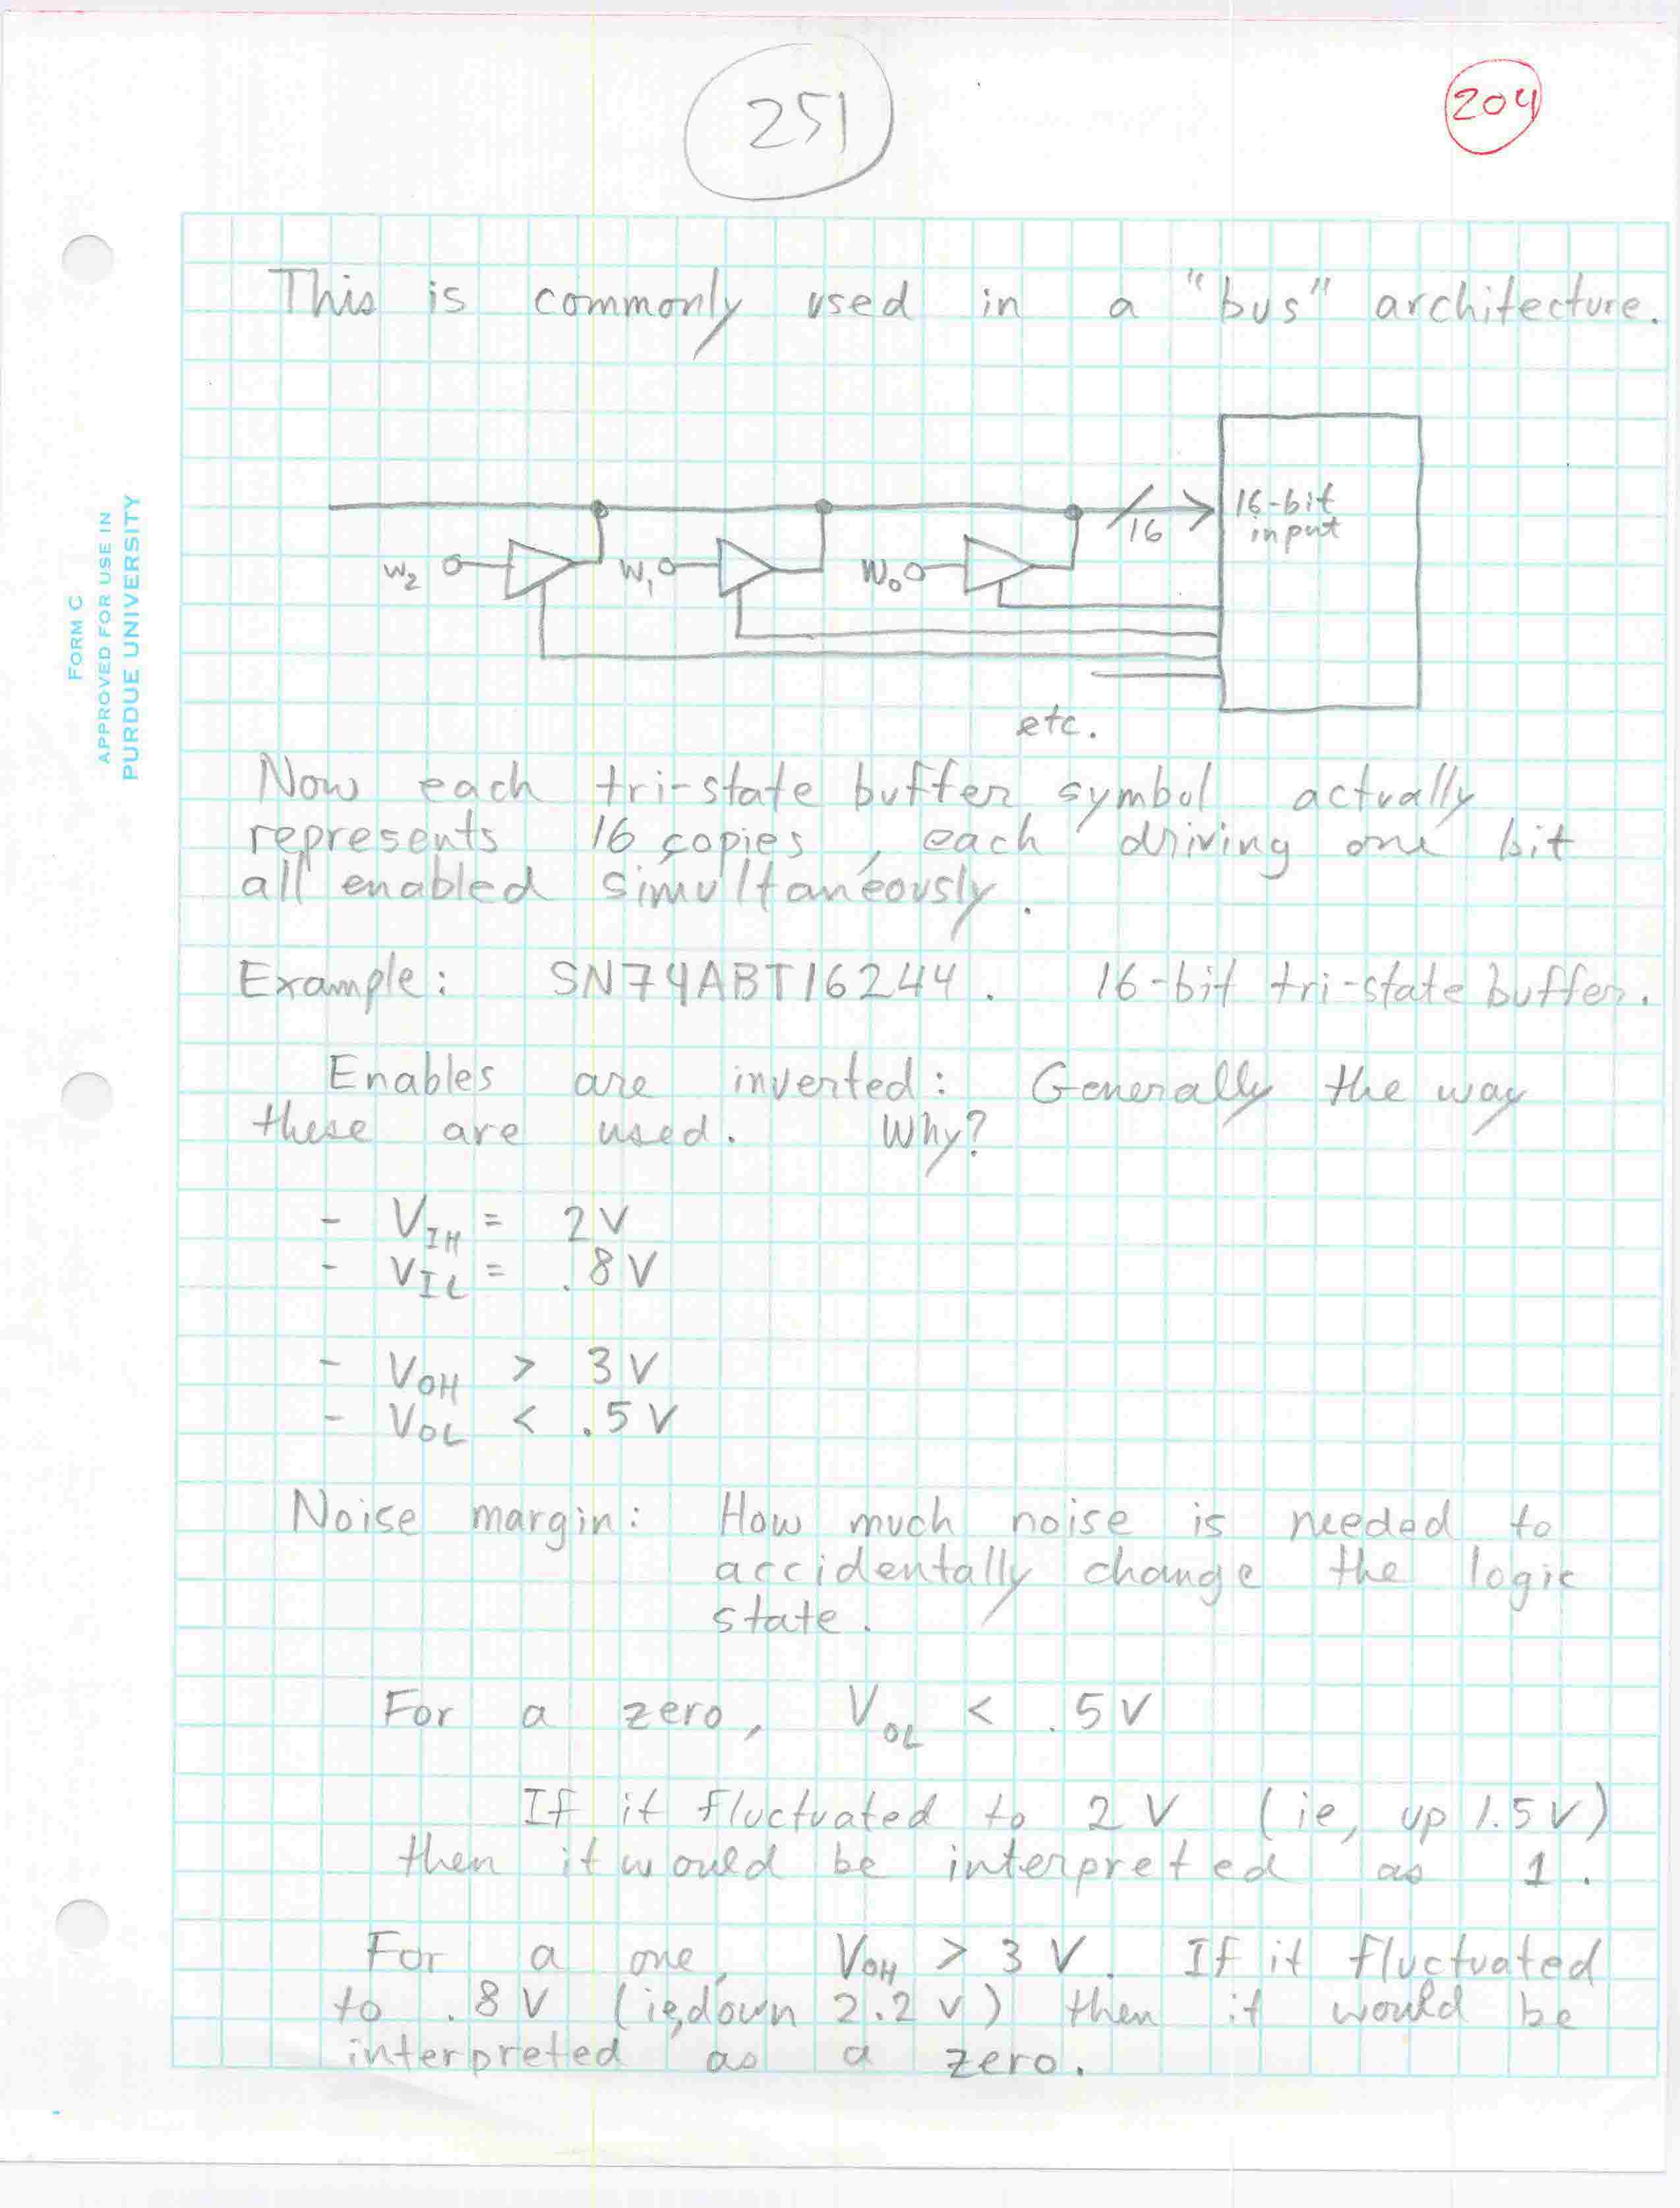 251
204
This is commonly used in a "bus" architecture.
16-bit
input
16
w₂
W₁
W₀
etc.
FORM C
APPROVED FOR USE IN
PURDUE UNIVERSITY
Now each tri-state buffer symbol actually
represents 16 copies, each driving one bit
all enabled simultaneously.
Example: SN74ABT16244. 16-bit tri-state buffer.
Enables are inverted: Generally the way
these are used. Why?
- V_IH = 2V
- V_IL = .8V
- V_OH > 3V
- V_OL < .5V
Noise margin: How much noise is needed to
accidentally change the logic
state.
For a zero, V_OL < .5V
If it fluctuated to 2V (ie, up 1.5V)
then it would be interpreted as 1.
For a one, V_OH > 3V. If it fluctuated
to .8V (ie, down 2.2V) then it would be
interpreted as a zero.